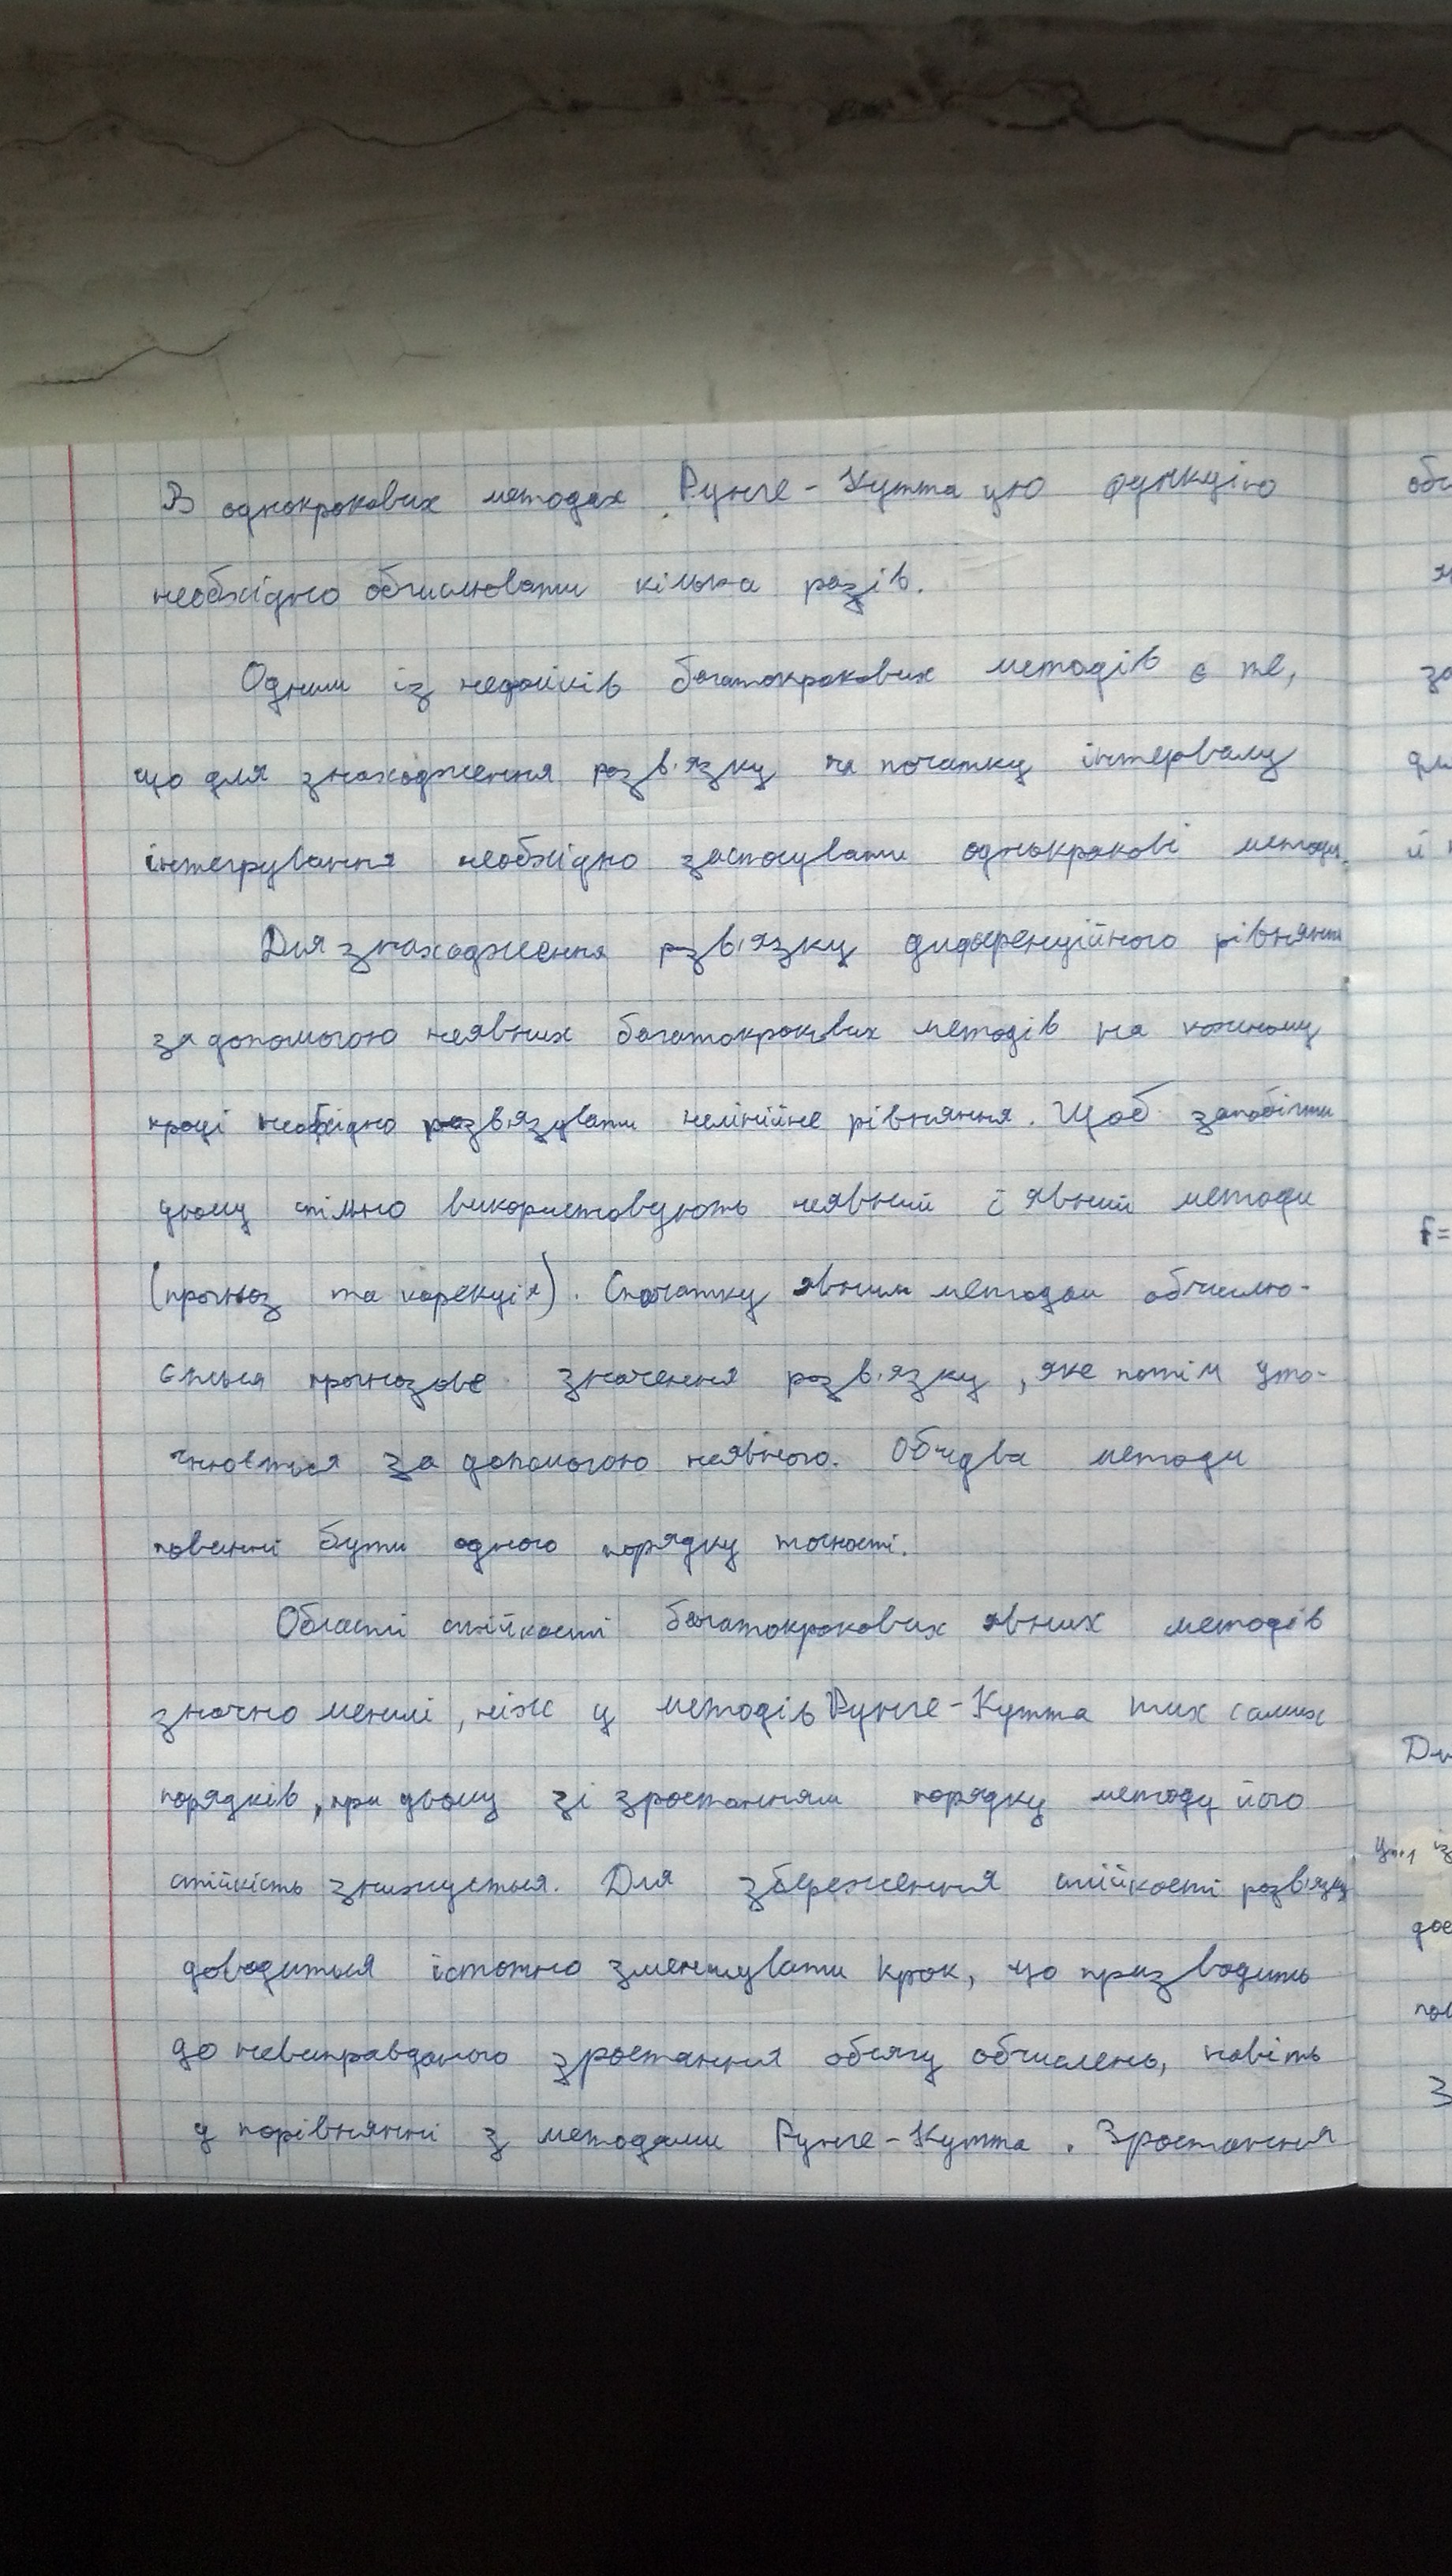 В однокрокових методах Рунге-Кутта цю функцію
необхідно обчислювати кілька разів.
Одним із недоліків багатокрокових методів є те,
що для знаходження розв'язку на початку інтервалу
інтегрування необхідно застосувати однокрокові методи.
Для знаходження розв'язку диференційного рівняння
за допомогою неявних багатокрокових методів на кожному
кроці необхідно розв'язувати нелінійне рівняння. Щоб запобігти
цьому спільно використовують неявний і явний методи
(прогноз та корекція). Спочатку явним методом обчислю-
ється прогнозове значення розв'язку, яке потім уто-
чнюється за допомогою неявного. Обидва методи
повинні бути одного порядку точності.
Області стійкості багатокрокових явних методів
значно менші, ніж у методів Рунге-Кутта тих самих
порядків, при цьому зі зростанням порядку методу його
стійкість знижується. Для збереження стійкості розв'язку
доводиться істотно зменшувати крок, що призводить
до невиправданого зростання обсягу обчислень, навіть
у порівнянні з методами Рунге-Кутта. Зростання
f=